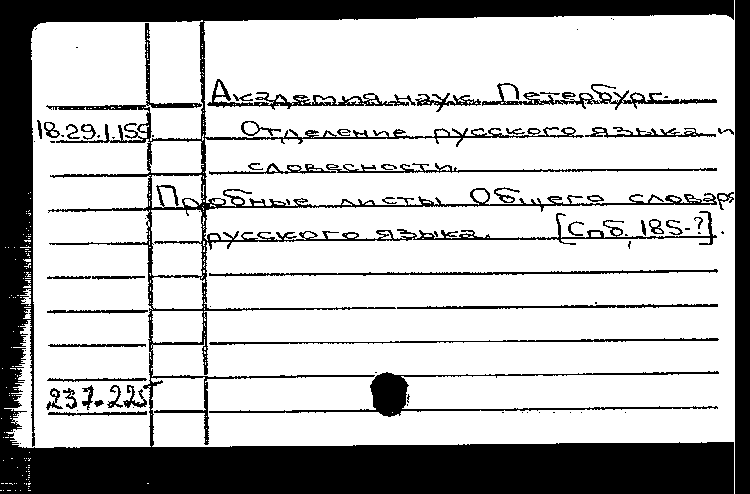 Академия наук. Петербург.
18.29.1.155 Отделение русского языка и
словесности.
Пробные листы Общего словаря
русского языка. [Спб, 185-?].
237-225